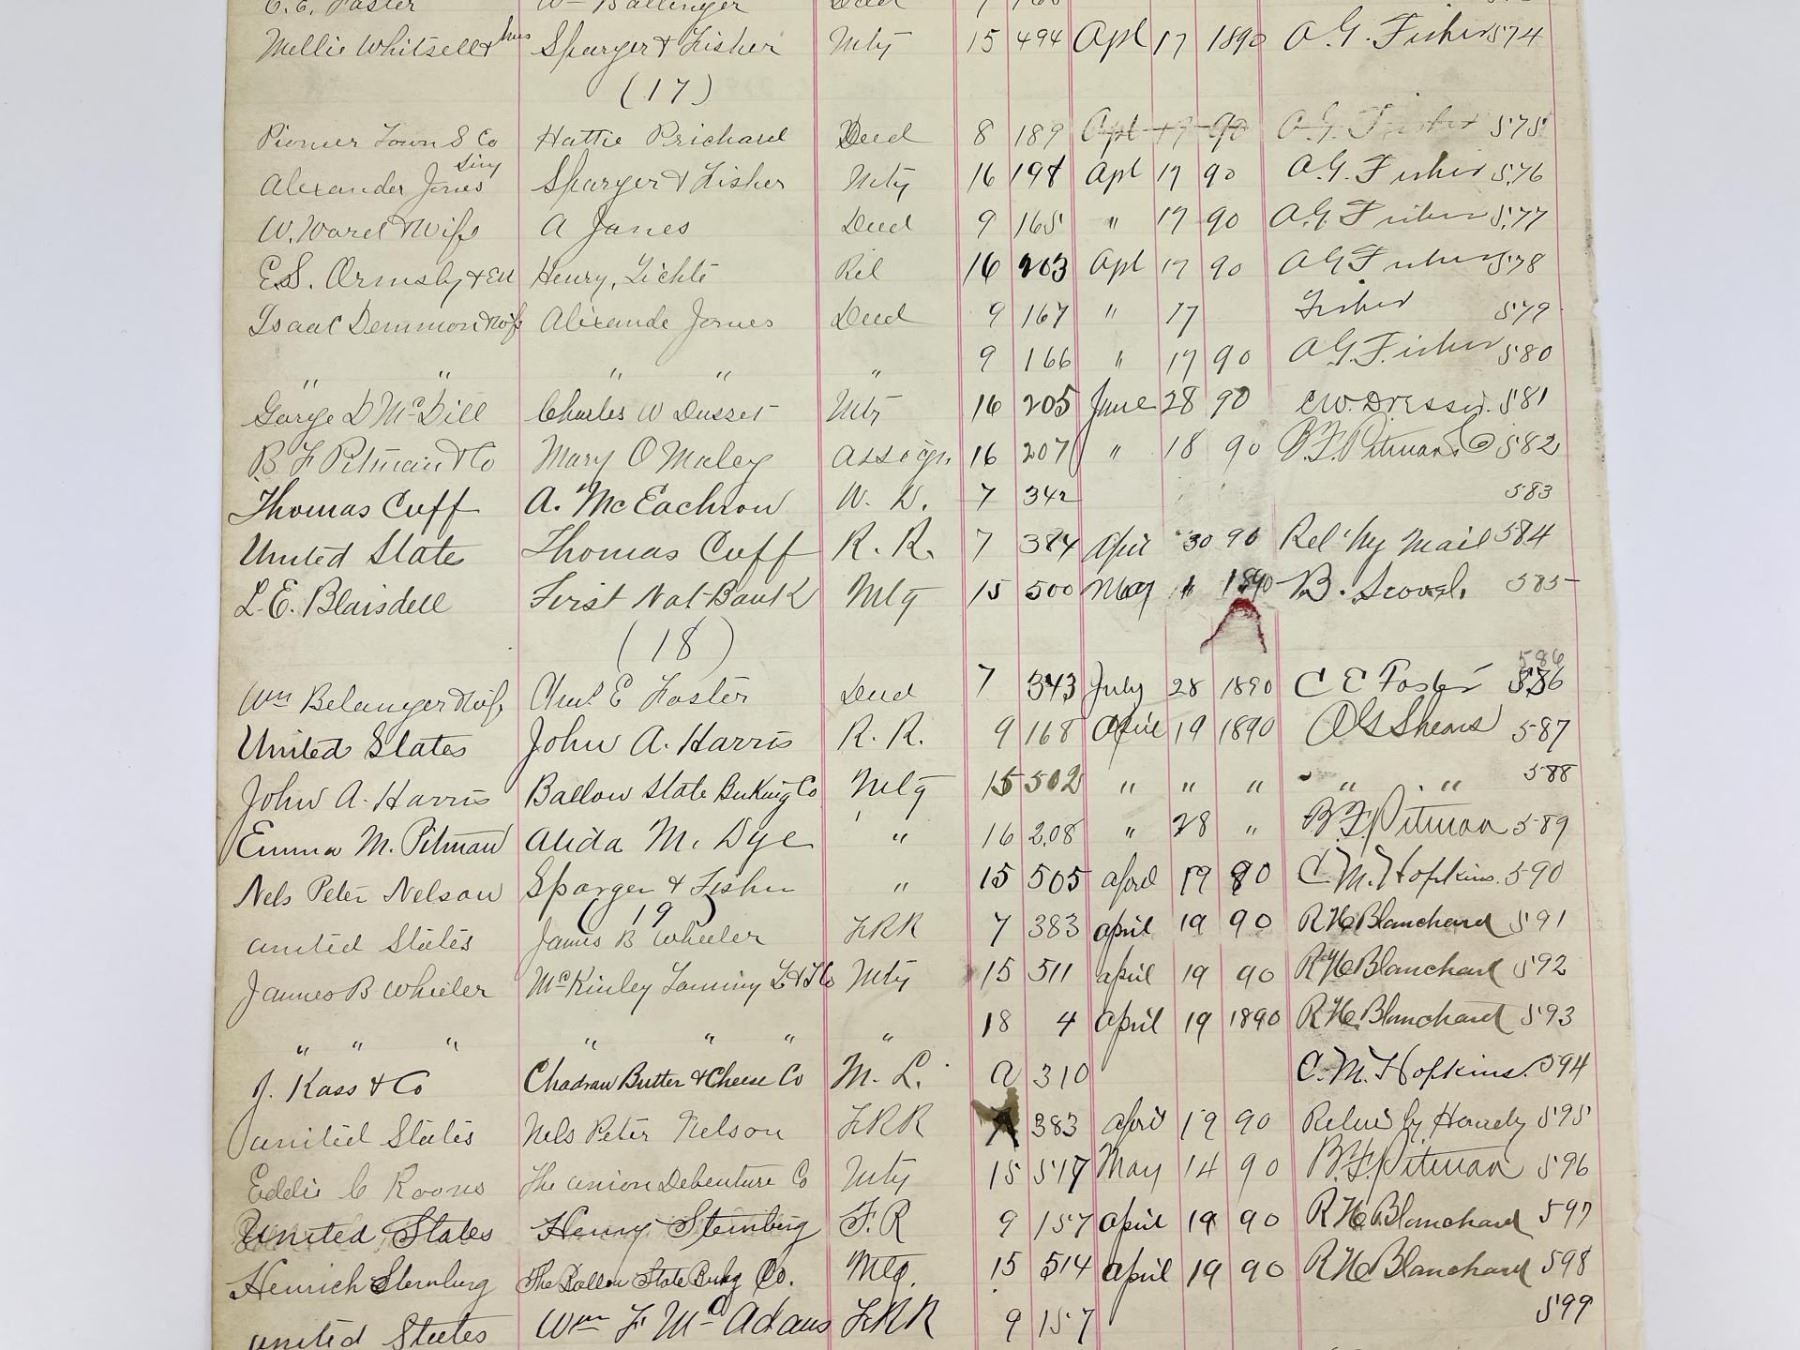 C. E. Foster Wm Ballinger Deed 7
Mellie Whitsell & hus Sparger & Fisher Mtg 15 494 Apl 17 1890 A. G. Fisher 574
(17)
Pioneer Town S Co Hattie Prichard Deed 8 189 Apl 17 90 A. G. Fisher 575
Alexander Jones Sparger & Fisher Mtg 16 198 Apl 17 90 A. G. Fisher 576
W. Ward & Wife A Jones Deed 9 165 " 17 90 A. G. Fisher 577
E. S. Ormsby & Henry Lichte Rel 16 203 Apl 17 90 A G Fisher 578
Isaac Demmon & Wife Alexande Jones Deed 9 167 " 17 Fisher 579
" " " " " 9 166 " 17 90 A. G. Fisher 580
George D McDill Charles W Dusset Mtg 16 205 June 28 90 C. W. Dresser. 581
B F Pitman & Co Mary O Maley Assign. 16 207 " 18 90 B. F. Pitman & Co 582
Thomas Cuff A. McEachron W. D. 7 342 583
United State Thomas Cuff R. R. 7 384 April 30 90 Ret by Mail 584
L. E. Blaisdell First Nat Bank Mtg 15 500 May 1890 B. Scovel. 585
(18)
Wm Belanger & Wife Chas E Foster Deed 7 343 July 28 1890 C E Foster 586
United States John A. Harris R. R. 9 168 April 19 1890 Shears 587
John A. Harris Ballow State Banking Co Mtg 15 502 " " " " " 588
Emma M. Pitman Alida M. Dye " 16 208 " 28 " B. F. Pitman 589
Nels Peter Nelson Sparger & Fisher " 15 505 April 19 90 C. M. Hopkins. 590
(19)
United States James B Wheeler FRR 7 383 April 19 90 R H Blanchard 591
James B Wheeler McKinley Lanning L & T Co Mtg 15 511 April 19 90 R H Blanchard 592
" " " " " " " 18 4 April 19 1890 R H Blanchard 593
J. Kass & Co Chadron Butter & Cheese Co M. L. A 310 C. M. Hopkins. 594
United States Nels Peter Nelson FRR 7 383 April 19 90 by 595
Eddie C Roons The Union Debenture Co Mtg 15 517 May 14 90 B. F. Pitman 596
United States Henry Sternburg F. R 9 157 April 19 90 R H Blanchard 597
Heinrich Sternburg The Ballou State Bnkg Co. Mtg. 15 514 April 19 90 R H Blanchard 598
United States Wm F McAdams FRR 9 157 599